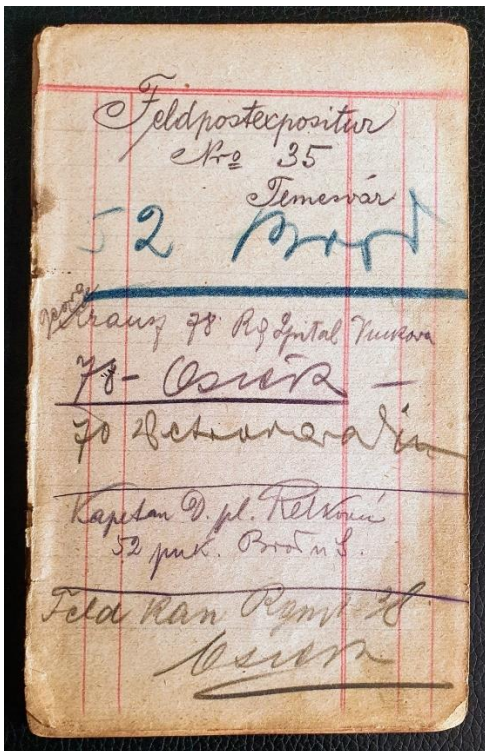 Feldpostexpositur
Nro 35
Temesvár
52 Brod
Krausz 78 Rg Spital Vuckova
78 - Osiek -
70 Petrovaradin
Kapetan D. pl. Relković
52 puk. Brod n S.
Feld Kan Rgmt 38
Osiek